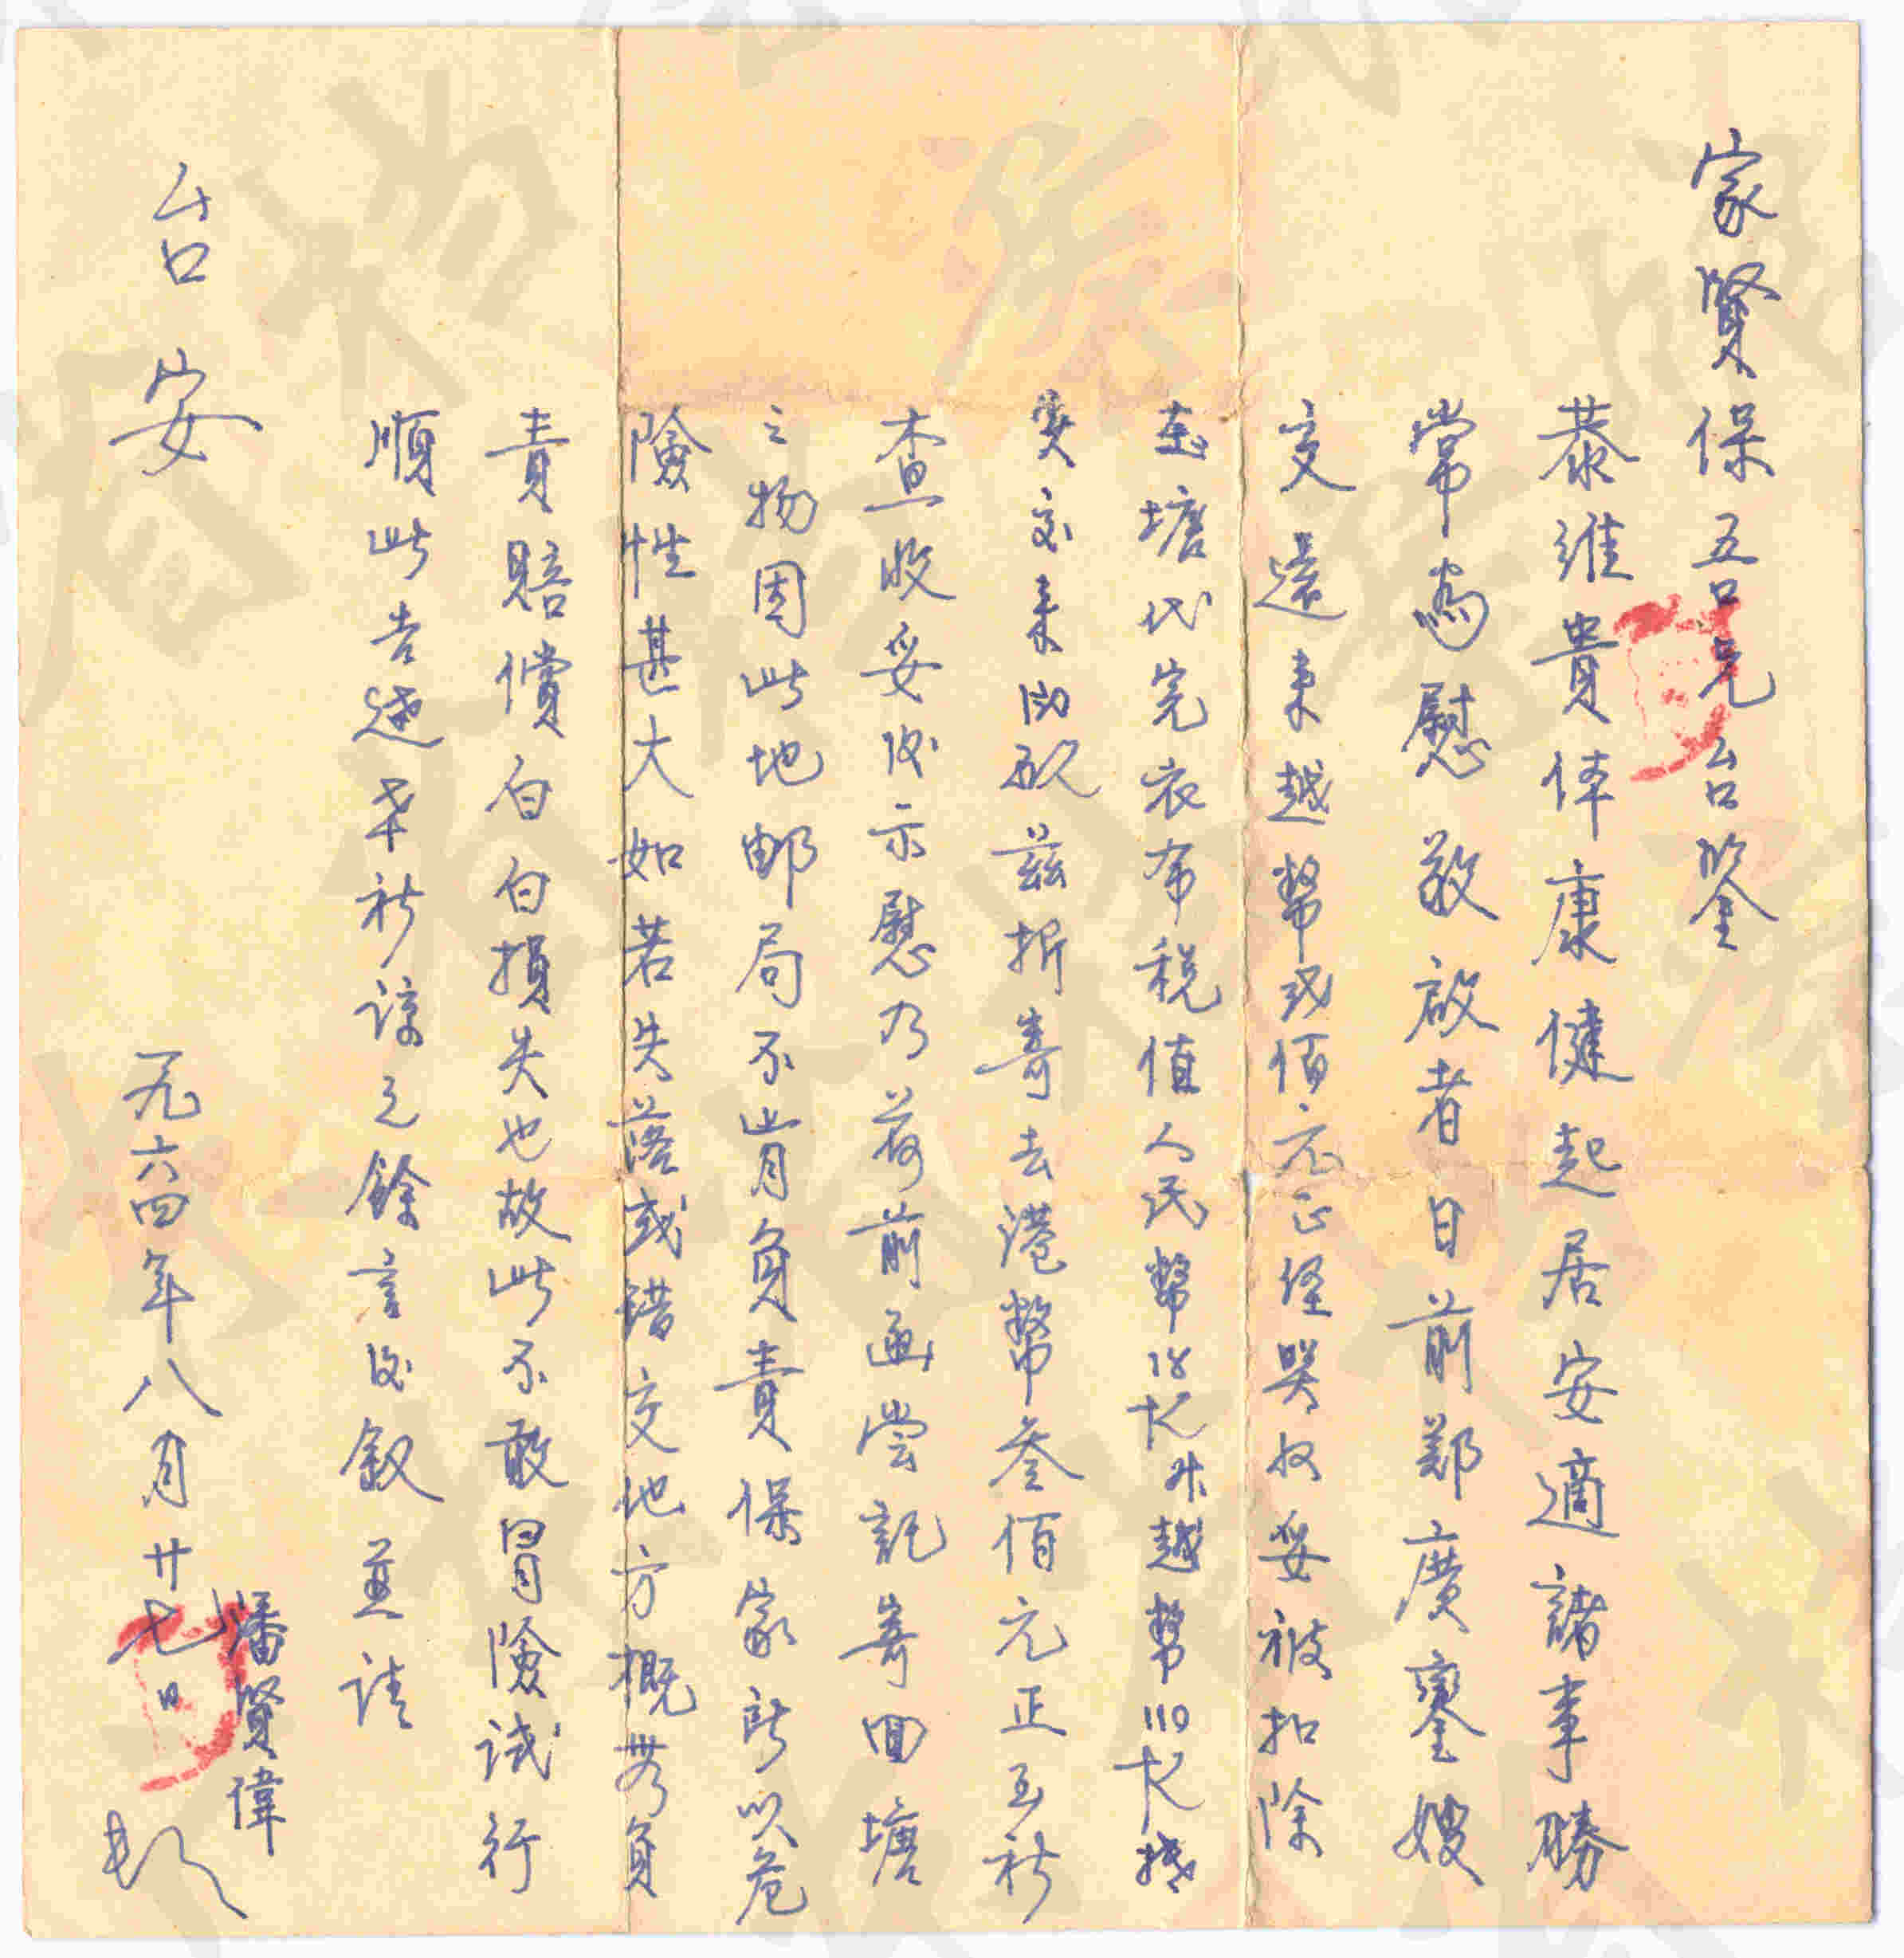 家賢保吾兄台鑒
恭維貴体康健起居安適諸事勝
常為慰敬啟者日前鄭廣鑾嫂
交還来越幣弍佰元正經哭收妥被扣除
塘代完衣布税值人民幣18元越幣110元
实交来兹折寄去港幣叁佰元正至祈
查收妥後示慰乃荷前函嘗託寄回塘
之物因此地邮局不肯負責保家所以危
險性甚大如若失落或錯交他方概無負
責賠償白白損失也故此不敢冒險试行
順此告達希祈諒之餘言後叙並请
台安
潘賢偉
一九六四年八月廿七日